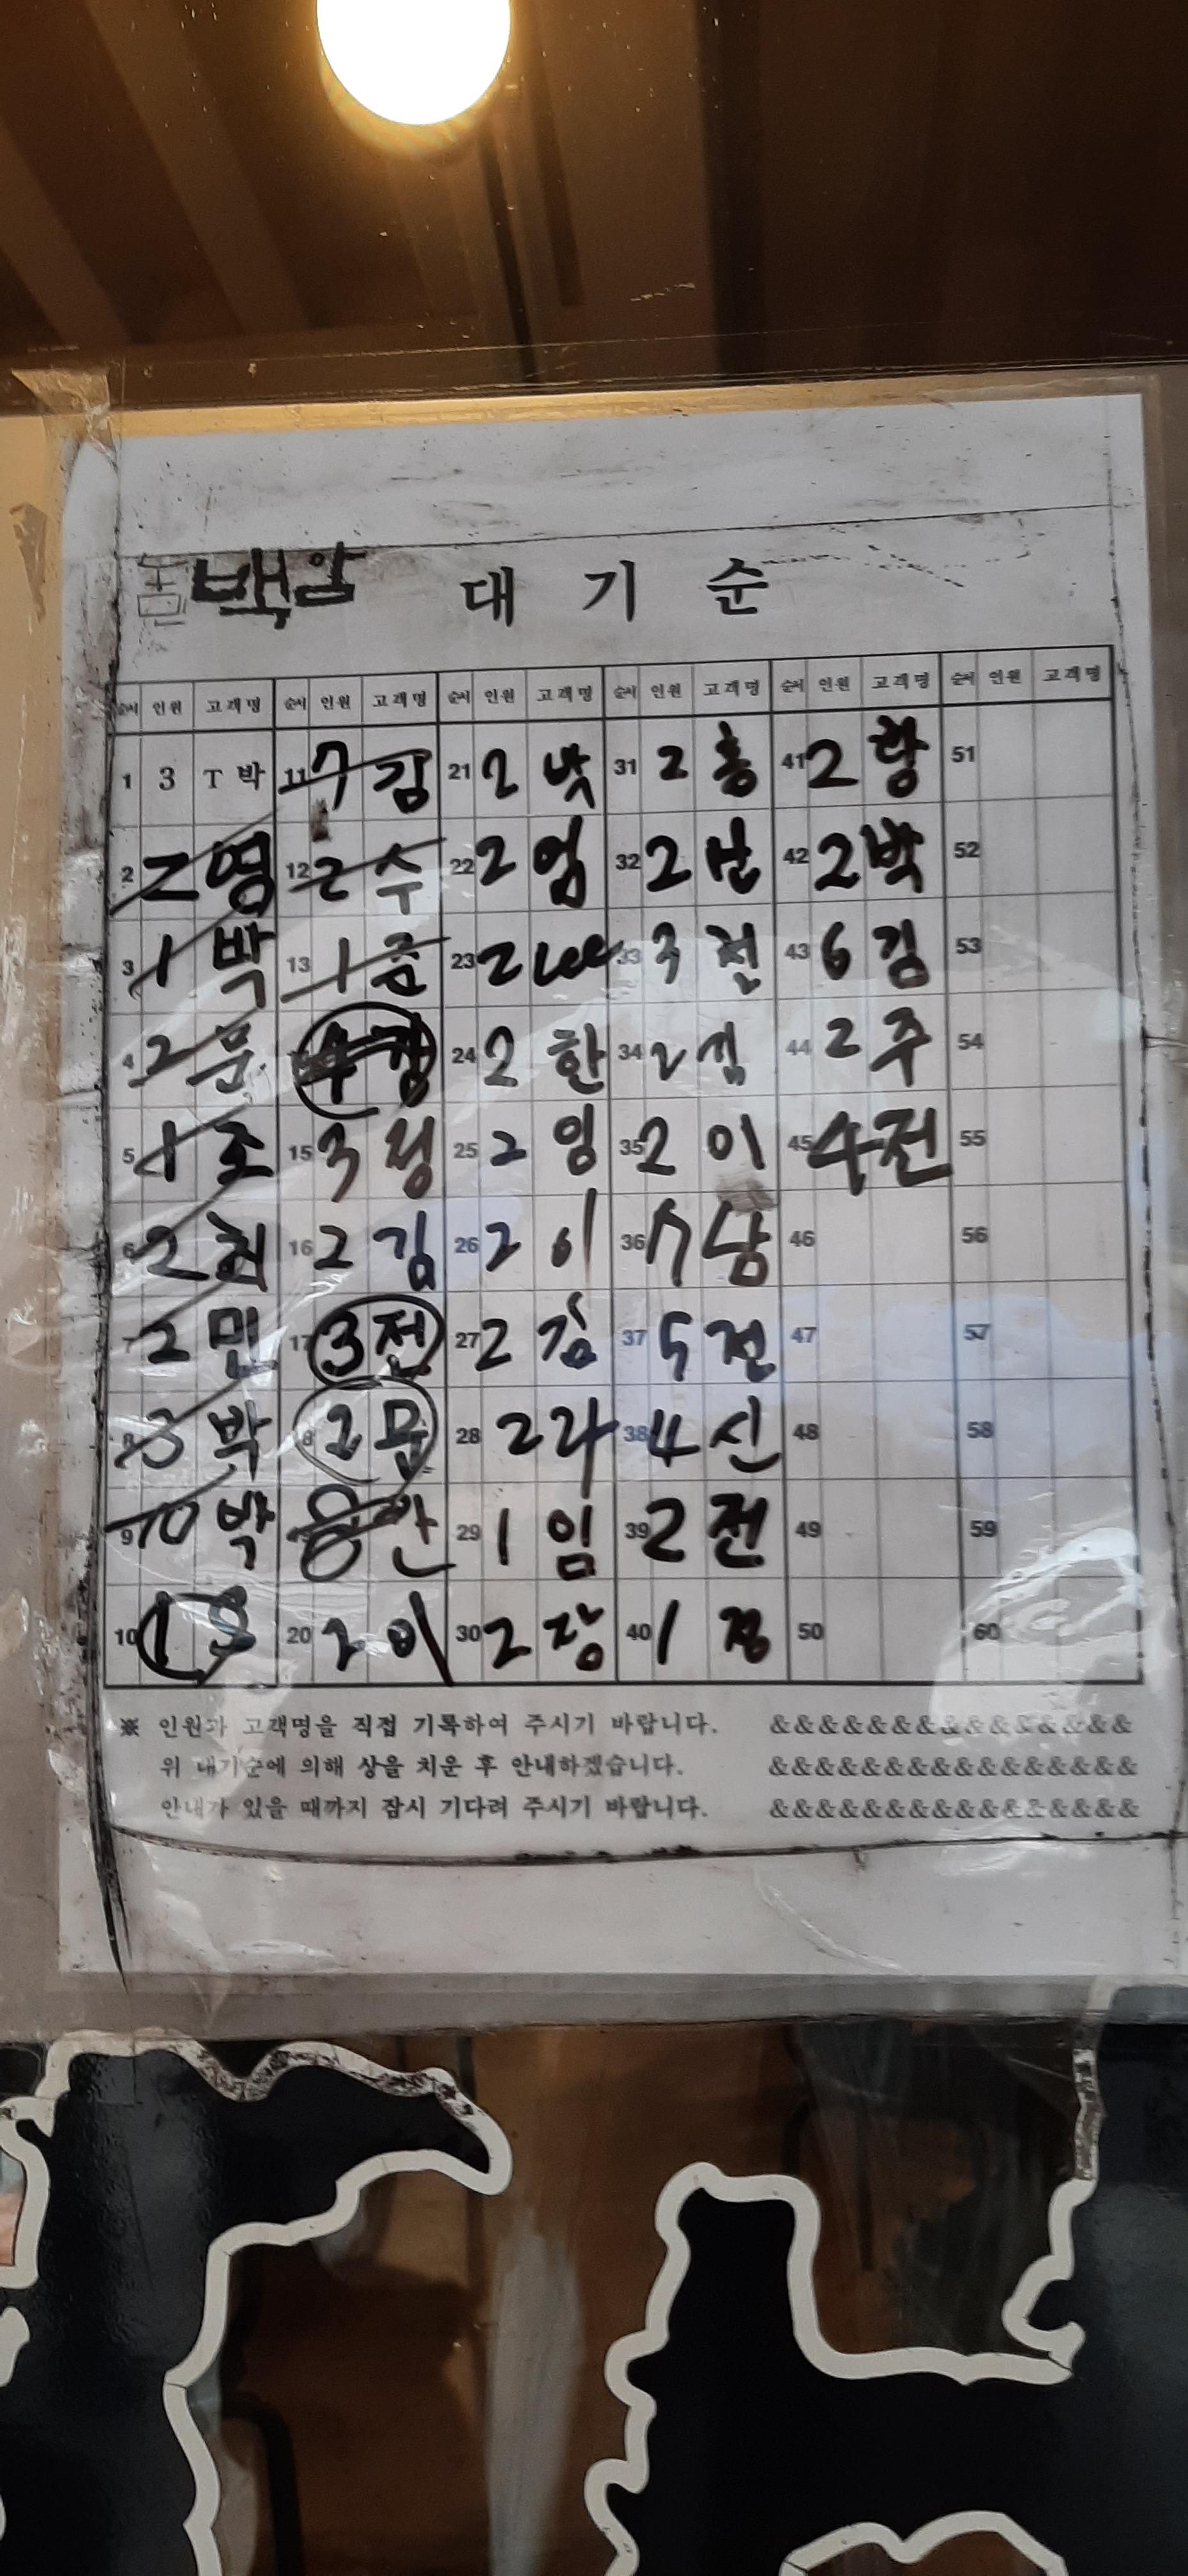 백암 대 기 순
순서 인원 고객명 순서 인원 고객명 순서 인원 고객명 순서 인원 고객명 순서 인원 고객명 순서 인원 고객명
1 3 T 박 11 7 김 21 2 박 31 2 홍 41 2 황 51
2 2 명 12 2 수 22 2 엄 32 2 52 42 2 박 52
3 1 박 13 1 금 23 2 Lee 33 3 전 43 6 김 53
4 2 문 24 2 한 34 2 김 44 2 주 54
5 1 조 15 3 정 25 2 임 35 2 이 45 4 전 55
6 2 최 16 2 김 26 2 이 36 남 46 56
7 2 민 17 3 전 27 2 김 37 5 전 47 57
8 3 박 2 문 28 2 라 38 4 신 48 58
9 10 박 29 1 임 39 2 전 49 59
10 1 20 2 이 30 2 장 40 1 정 50 60
※ 인원과 고객명을 직접 기록하여 주시기 바랍니다. &&&&&&&&&&&&&&&
위 대기순에 의해 상을 치운 후 안내하겠습니다. &&&&&&&&&&&&&&&&
안내가 있을 때까지 잠시 기다려 주시기 바랍니다. &&&&&&&&&&&&&&&&